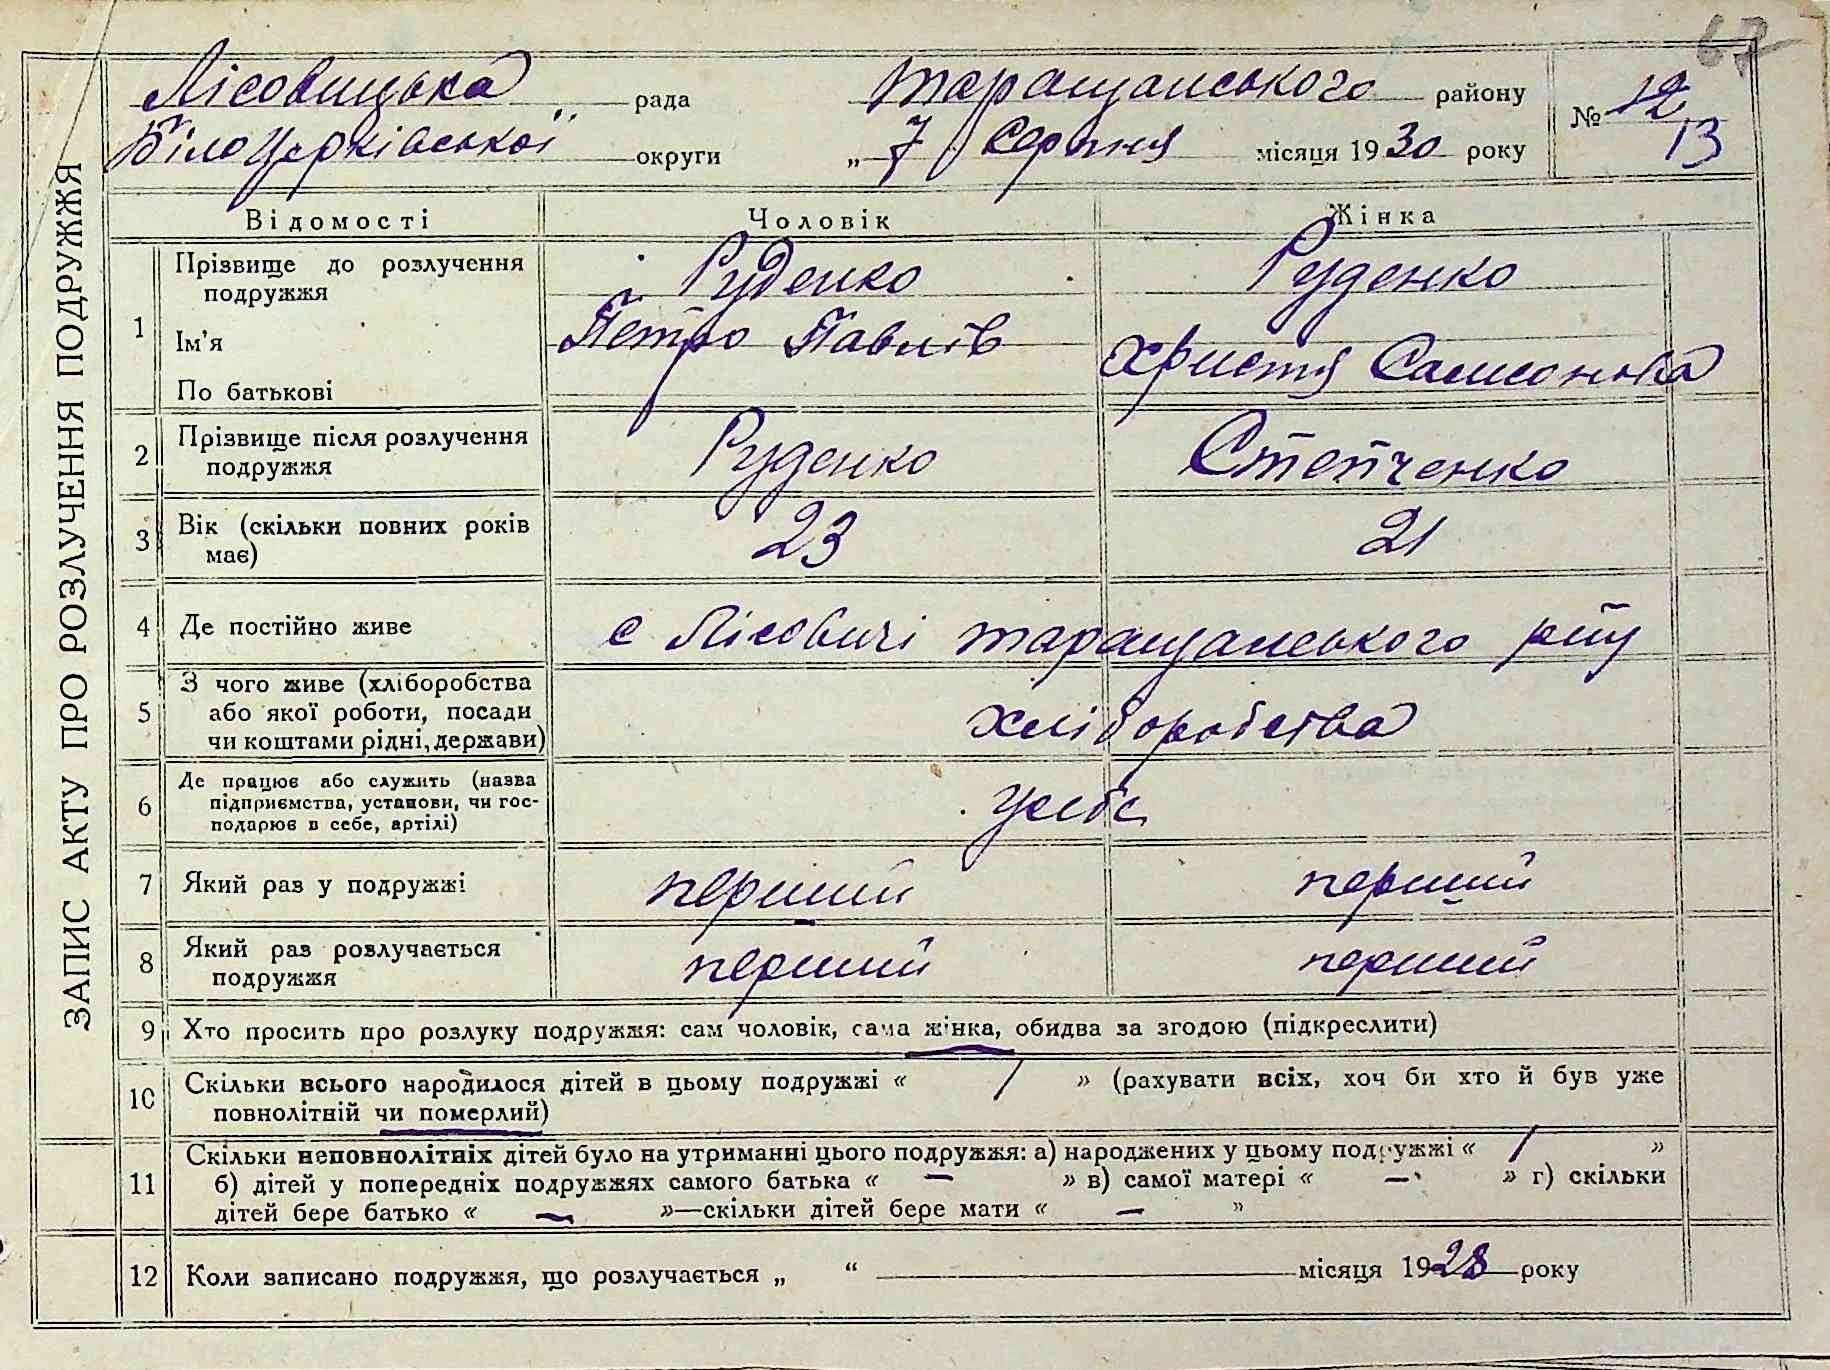 67
Лісовицька рада Таращанського району № 12
Білоцерківської округи „ 7 " Серпня місяця 1930 року 13
ЗАПИС АКТУ ПРО РОЗЛУЧЕННЯ ПОДРУЖЖЯ
Відомості Чоловік Жінка
1 Прізвище до розлучення подружжя Руденко Руденко
Ім'я Петро Павлів Христя Самсонова
По батькові
2 Прізвище після розлучення подружжя Руденко Степченко
3 Вік (скільки повних років має) 23 21
4 Де постійно живе с Лісовичі таращанського р-ну
5 З чого живе (хліборобства
або якої роботи, посади
чи коштами рідні, держави) хліборобства
6 Де працює або служить (назва
підприємства, установи, чи гос-
подарює в себе, артілі) у себе
7 Який раз у подружжі перший перший
8 Який раз розлучається
подружжя перший перший
9 Хто просить про розлуку подружжя: сам чоловік, сама жінка, обидва за згодою (підкреслити)
10 Скільки всього народилося дітей в цьому подружжі « / » (рахувати всіх, хоч би хто й був уже
повнолітній чи померлий)
11 Скільки неповнолітніх дітей було на утриманні цього подружжя: а) народжених у цьому подружжі « / »
б) дітей у попередніх подружжях самого батька « — » в) самої матері « — » г) скільки
дітей бере батько « — »—скільки дітей бере мати « — »
12 Коли записано подружжя, що розлучається „ “ місяця 1928 року